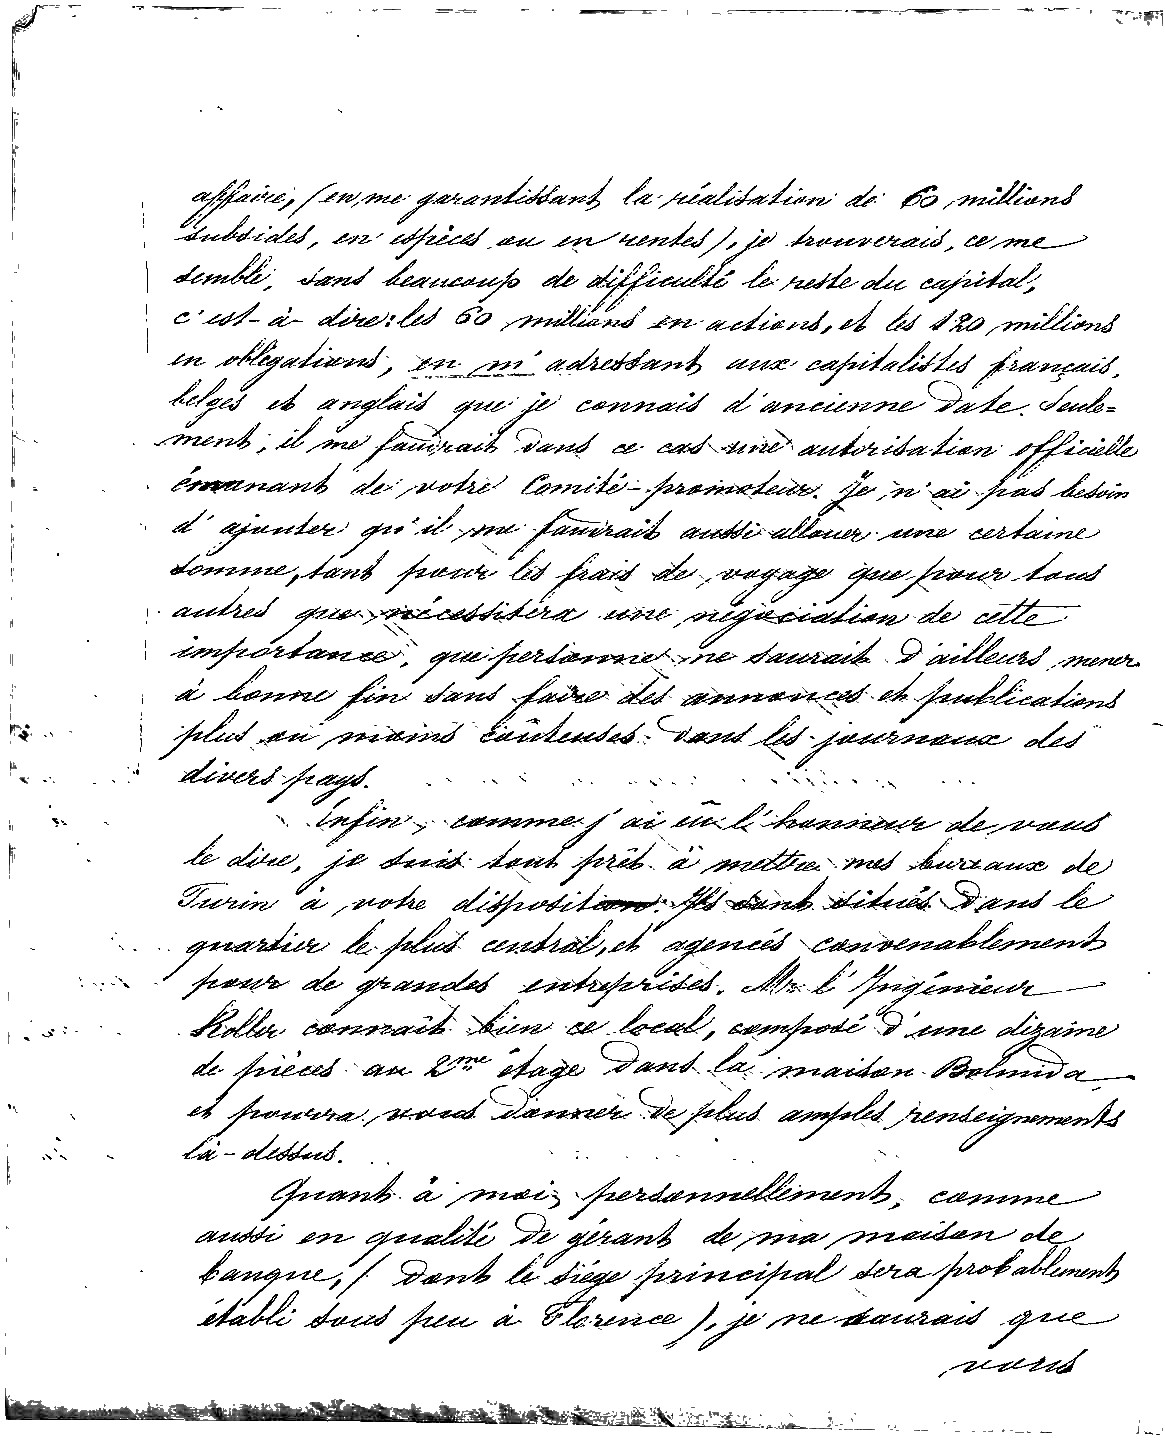 affaire, (en me garantissant la réalisation de 60 millions
subsides, en espèces ou en rentes), je trouverais, ce me
semble, sans beaucoup de difficulté le reste du capital,
c'est-à-dire: les 60 millions en actions, et les 120 millions
en obligations, en m'adressant aux capitalistes français,
belges et anglais que je connais d'ancienne date. Seule=
ment, il me faudrait dans ce cas une autorisation officielle
émanant de votre Comité-promoteur. Je n'ai pas besoin
d'ajouter qu'il me faudrait aussi allouer une certaine
somme, tant pour les frais de voyage que pour tous
autres que nécessitera une négociation de cette
importance, que personne ne saurait d'ailleurs mener
à bonne fin sans faire des annonces et publications
plus ou moins coûteuses dans les journaux des
divers pays.
Enfin, comme j'ai eû l'honneur de vous
le dire, je suis tout prêt à mettre mes bureaux de
Turin à votre disposition. Ils sont situés dans le
quartier le plus central, et agencés convenablement
pour de grandes entreprises. Mr l'Ingénieur
Koller connaît bien ce local, composé d'une dizaine
de pièces au 2me étage dans la maison Bolmida
et pourra vous donner de plus amples renseignements
là-dessus.
Quant à moi personnellement, comme
aussi en qualité de gérant de ma maison de
banque, (dont le siége principal sera probablement
établi sous peu à Florence), je ne saurais que
vous